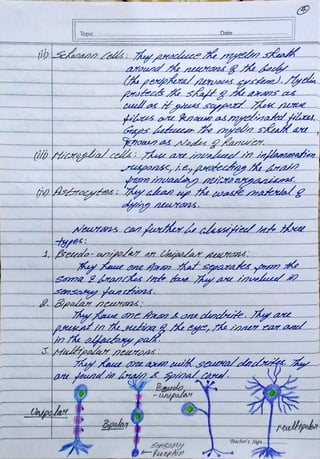 Topic Date
(ii) Schwann Cells: They produce the myelin sheath
around the neurons of the body
(the peripheral nervous system). Myelin
protects the shaft of the axons as
well as it gives support. These nerve
fibres are known as myelinated fibres.
Gaps between the myelin sheath are
known as Nodes of Ranvier.
(iii) Microglial cells: These are involved in inflammation
response, i.e., protecting the brain
from invading microorganisms.
(iv) Astrocytes: They clean up the waste material &
dying neurons.
Neurons can further be classified into three
types:
1. Pseudo-unipolar or Unipolar neurons:
They have one Axon that separates from the
Soma & branches into two. They are involved in
sensory functions.
2. Bipolar neurons:
They have one Axon & one dendrite. They are
present in the retina of the eye, the inner ear and
in the olfactory path.
3. Multipolar neurons:
They have one axon with several dendrites. They
are found in brain & spinal cord.
Unipolar
Bipolar
Pseudo
-unipolar
Multipolar
Sensory
Receptor
Teacher's Sign